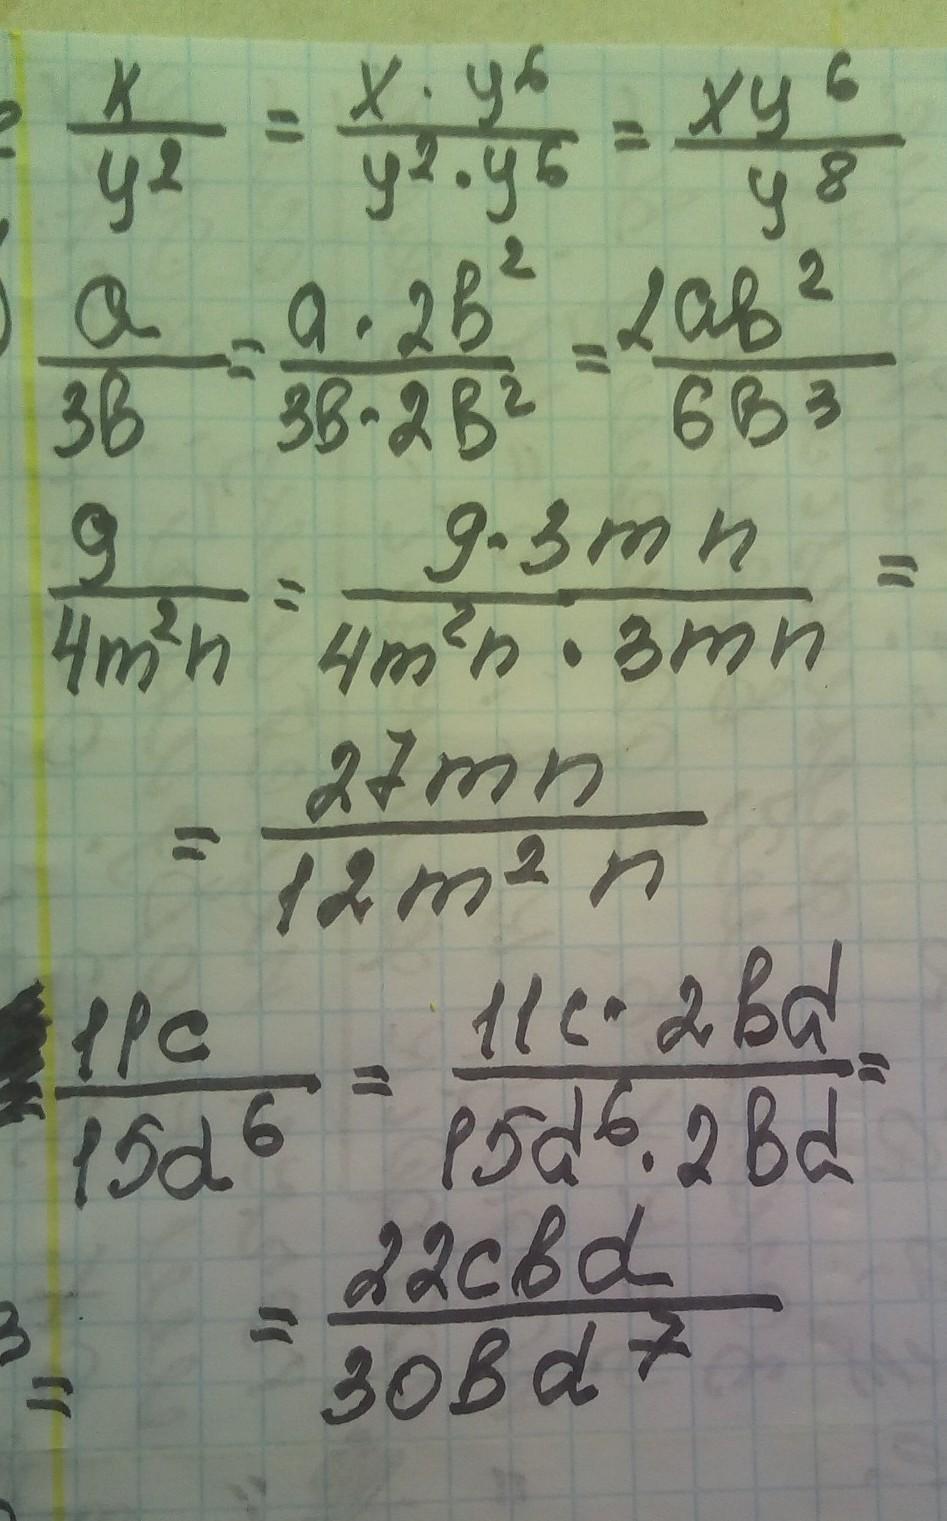 x/y² = x · y⁶/y² · y⁶ = xy⁶/y⁸
a/3b = a · 2b²/3b · 2b² = 2ab²/6b³
9/4m²n = 9 · 3mn/4m²n · 3mn =
= 27mn/12m²n
11c/15d⁶ = 11c · 2bd/15d⁶ · 2bd =
= 22cbd/30bd⁷
3
=